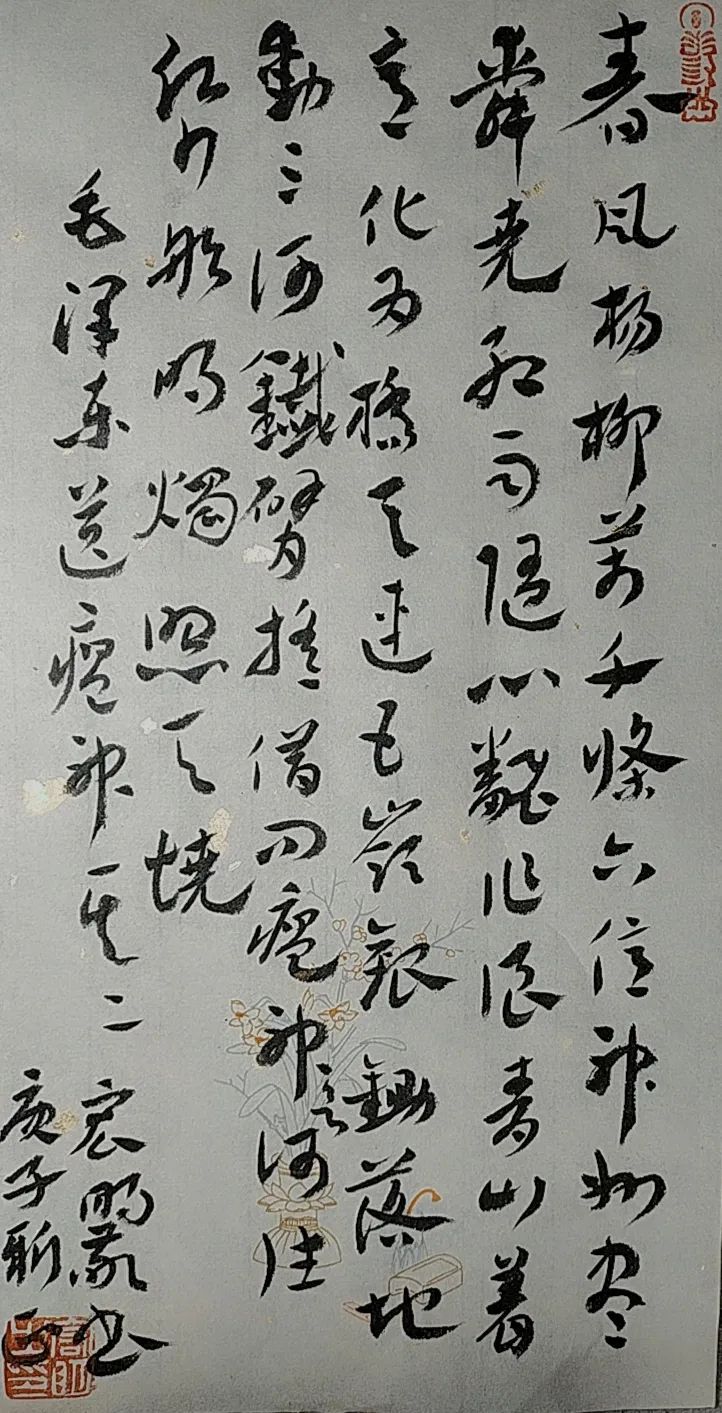 春风杨柳万千条六亿神州尽
舜尧红雨随心翻作浪青山着
意化为橋天连五岭银鋤落地
動三河鐵臂摇借问瘟神何往
纸船明燭照天燒
毛泽东送瘟神其二
宏明敬书
庚子新正